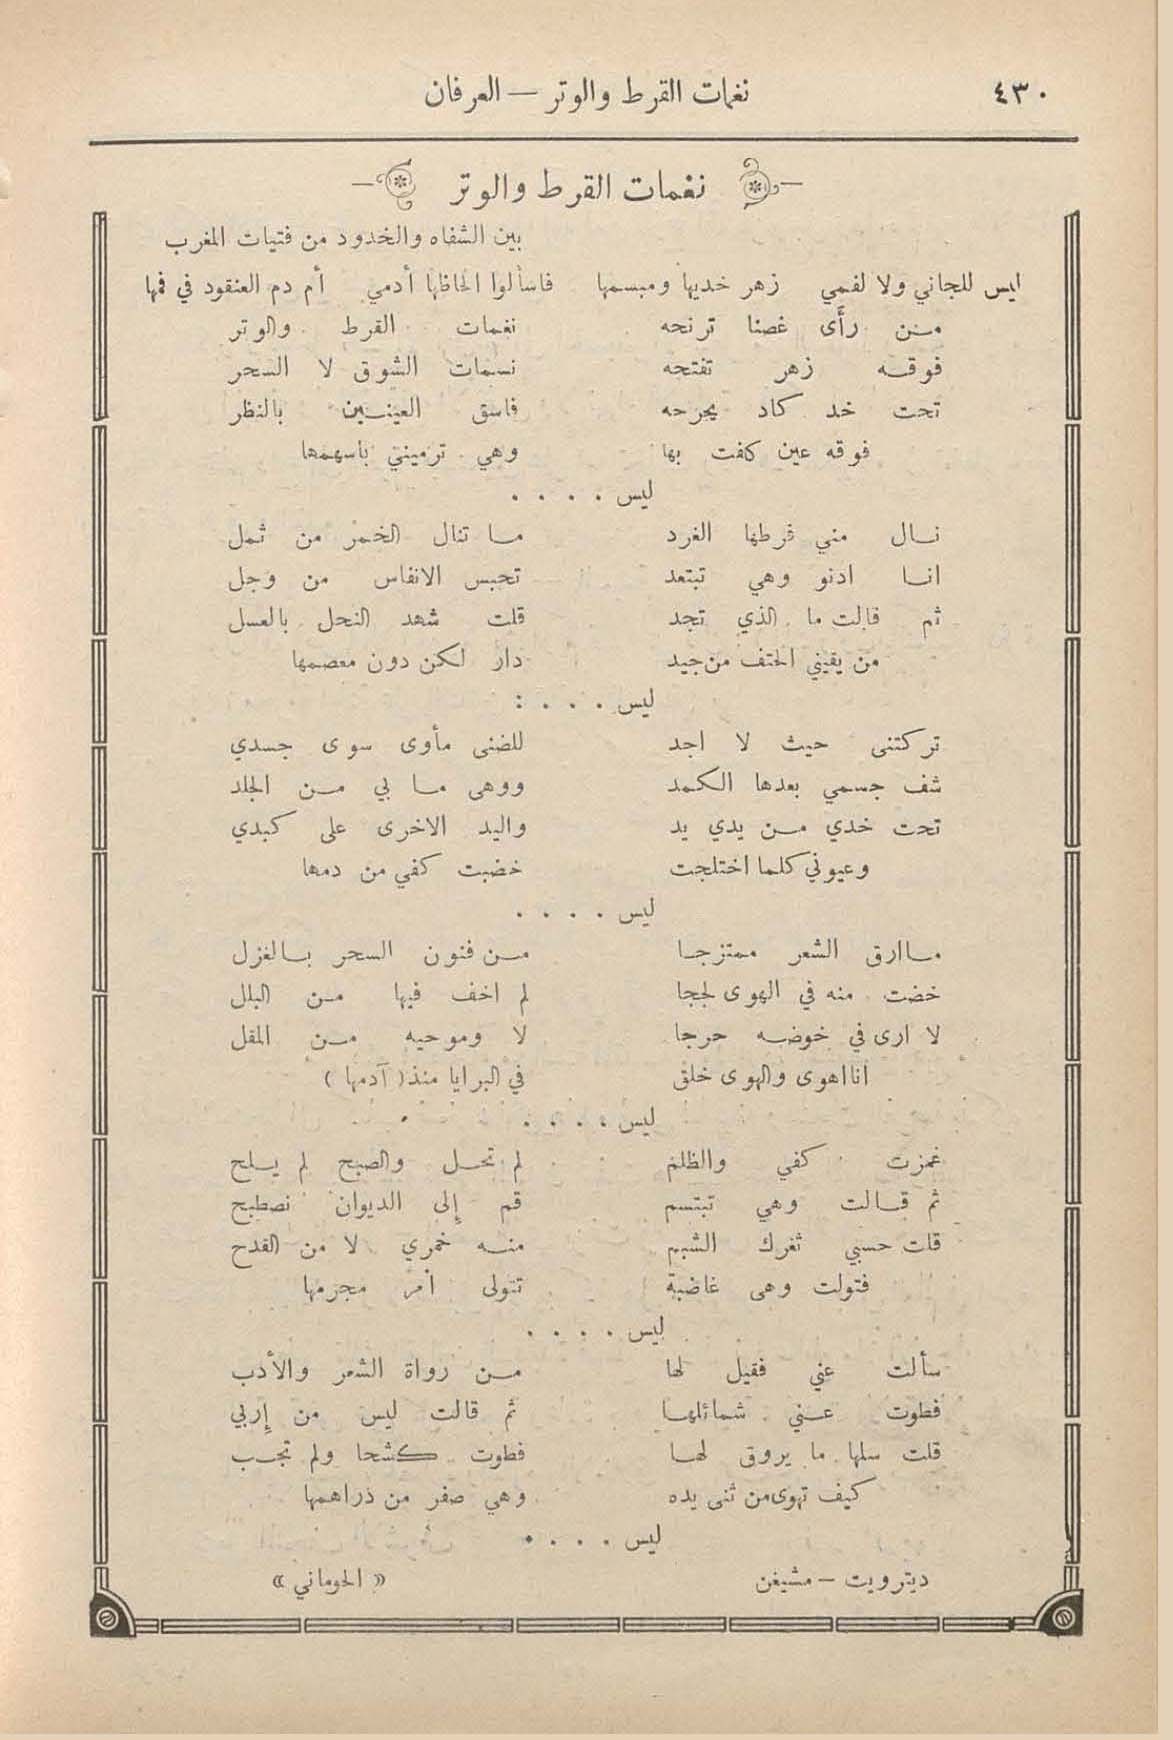 ٤٣٠ نغمات القرط والوتر — العرفان
نغمات القرط والوتر
بين الشفاه والخدود من فتيات المغرب
ليس للجاني ولا لفمي زهر خديها ومبسمها فاسألوا الحاظها أدمي أم دم العنقود في فمها
من رأى غصنا ترنحه نغمات القرط والوتر
فوقه زهر تفتحه نسمات الشوق لا السحر
تحت خد كاد يجرحه فاسق العينين بالنظر
فوقه عين كلفت بها وهي ترميني باسهمها
ليس . . . .
نال مني قرطها الغرد ما تنال الخمر من ثمل
انا ادنو وهي تبتعد تحبس الانفاس من وجل
ثم قالت ما الذي تجد قلت شهد النحل بالعسل
من يقيني الحتف من جيد دار لكن دون معصمها
ليس . . . . :
تركتنى حيث لا اجد للضنى مأوى سوى جسدي
شف جسمي بعدها الكمد ووهى ما بي من الجلد
تحت خدي من يدي يد واليد الاخرى على كبدي
وعيوني كلما اختلجت خضبت كفي من دمها
ليس . . . .
ما ارق الشعر ممتزجا من فنون السحر بالغزل
خضت منه في الهوى لججا لم اخف فيها من البلل
لا ارى في خوضه حرجا لا وموحيه من المقل
انا اهوى والهوى خلق في البرايا منذ ( آدمها )
ليس . . . .
غمزت كفي والظلم لم تحل والصبح لم يلح
ثم قالت وهي تبتسم قم إلى الديوان نصطبح
قلت حسبي ثغرك الشبم منه خمري لا من القدح
فتولت وهى غاضبة تتولى أمر مجرمها
ليس . . . .
سألت عني فقيل لها من رواة الشعر والأدب
فطوت عني شمائلها ثم قالت ليس من إربي
قلت سلها ما يروق لها فطوت كشحا ولم تجب
كيف تهوى من ثنى يده وهي صفر من دراهمها
ليس . . . .
ديترويت — مشيغن « الحوماني »